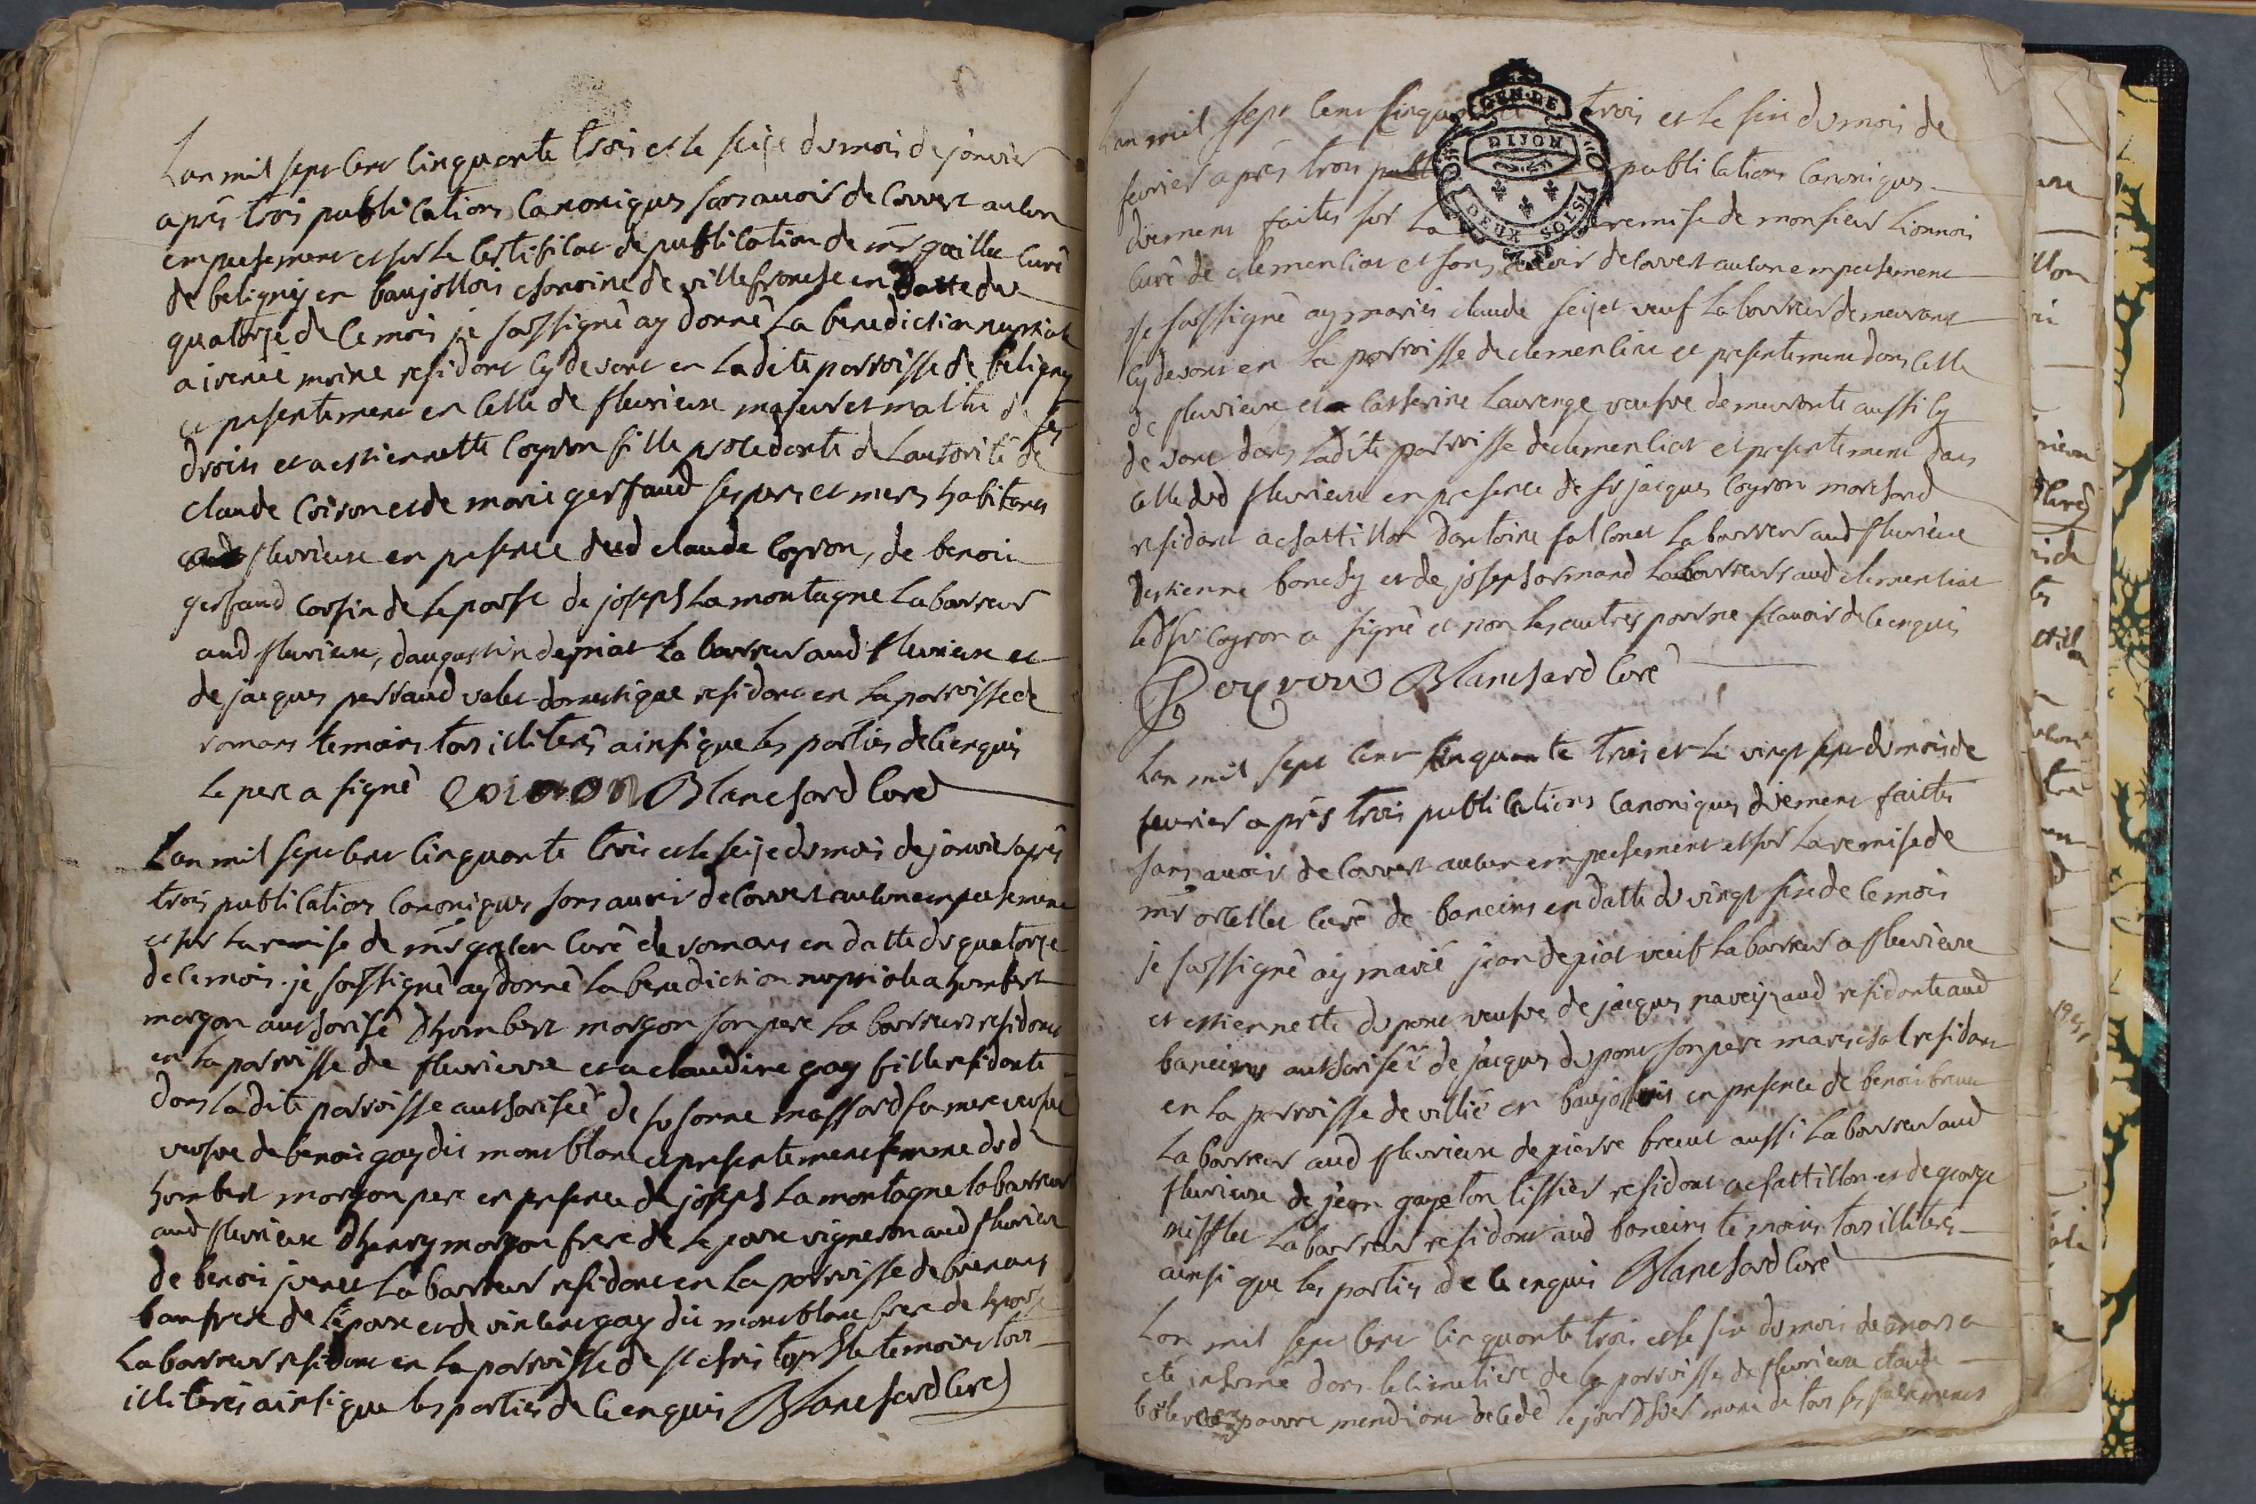 Lan mil sept cent cinquante trois et le seize du mois de janvier
aprês trois publications canoniques sans avoir decouvert aucun
empeschement et sur le certificat de publication de mr gaillet curê
de beligny en baujollois chanoine de villefranche en datte du
quatorze de ce mois je soussignê ay donnê la benediction nuptiale
a irenée moine residant cy devant en la dite parroisse de beligny
et presentement en celle de fleurieux majeur et maitre de ses
droits et a estiennette Coyron fille procedante de Lautorité de
claude Coiron et de marie gerfaud ses pere et mere habitants
aud fleurieux en presence dud claude Coyron, de benoit
gerfaud cousin de lepouse de joseph Lamontagne Laboureur
aud fleurieux, daugustin depiat Laboureur aud fleurieux et
de jacques perraud valet domestique residant en la parroisse de
romans temoins tous illiterés ainsi que les parties de ce enquis
le pere a signé Coiron Blanchard Curé
Lan mil sept cent cinquante trois et le seize du mois de janvier aprês
trois publications canoniques sans avoir decouvert aucun empeschement
et sur la remise de mr curé de romans en datte du quatorze
de ce mois. je soussigné ay donné la benediction nuptiale a humbert
morgon authorisé dhumbert morgon son pere laboureur residant
en la parroisse de fleurieux et a claudine gay fille residante
dans la dite parroisse authorisée de susanne massard sa mere veufve
veufve de benoit gay dit montblanc et presentement femme dud
humbert morgon pere en presence de joseph Lamontagne laboureur
aud fleurieux dhenry morgon frere de lepoux vigneron aud fleurieux
de benoit laboureur residant en la parroisse de
beaufrere de lepoux et de vincent gay dit montblanc frere de lepouse
Laboureur residant en la parroisse de st christophle temoins tous
illiterés ainsi que les parties de ce enquis Blanchard Curé
Lan mil sept cent cinquante trois et le six du mois de
fevrier aprês trois publications canoniques
duement faites sur la remise de monsieur Lionnois
curé de clemenciat et sans avoir decouvert aucun empeschement
je soussigné ay mariés claude veuf Laboureur demeurant
cy devant en la parroisse de clemenciat et presentement dans celle
de fleurieux et catherine Laurenge veufve demeurante aussi cy
devant dans ladite parroisse de clemenciat et presentement dans
celle dud fleurieux en presence de sr jacques Coyron marchand
residant a chattillon dantoine falconet Laboureur aud fleurieux
destienne et de joseph armand laboureurs aud clemenciat
led sr Coyron a signé et non les autres pour ne scavoir de ce enquis
Coyron Blanchard Curé
GEN. DE
DIJON
DEUX SOLS
Lan mil sept cent cinquante trois et le vingt sept du mois de
fevrier aprês trois publications canoniques duement faites
sans avoir decouvert aucun empeschement et sur la remise de
mr curé de baneins en datte du vingt six de ce mois
je soussigné ay marié jean depiat veuf laboureur a fleurieux
et estiennette dupont veufve de jacques residante aud
baneins authorisée de jacques dupont son pere mareschal residant
en la parroisse de villié en baujollois en presence de benoit
Laboureur aud fleurieux de pierre aussi laboureur aud
fleurieux de jean gayeton tissier residant a chattillon et de george
laboureur residant aud baneins temoins tous illiterés
ainsi que les parties de ce enquis Blanchard Curé
Lan mil sept cent cinquante trois et le six du mois de mars a
eté inhumé dans le cimetiere de la parroisse de fleurieux claude
pauvre mendiant decedé le jour dhier muni de tous ses sacrements